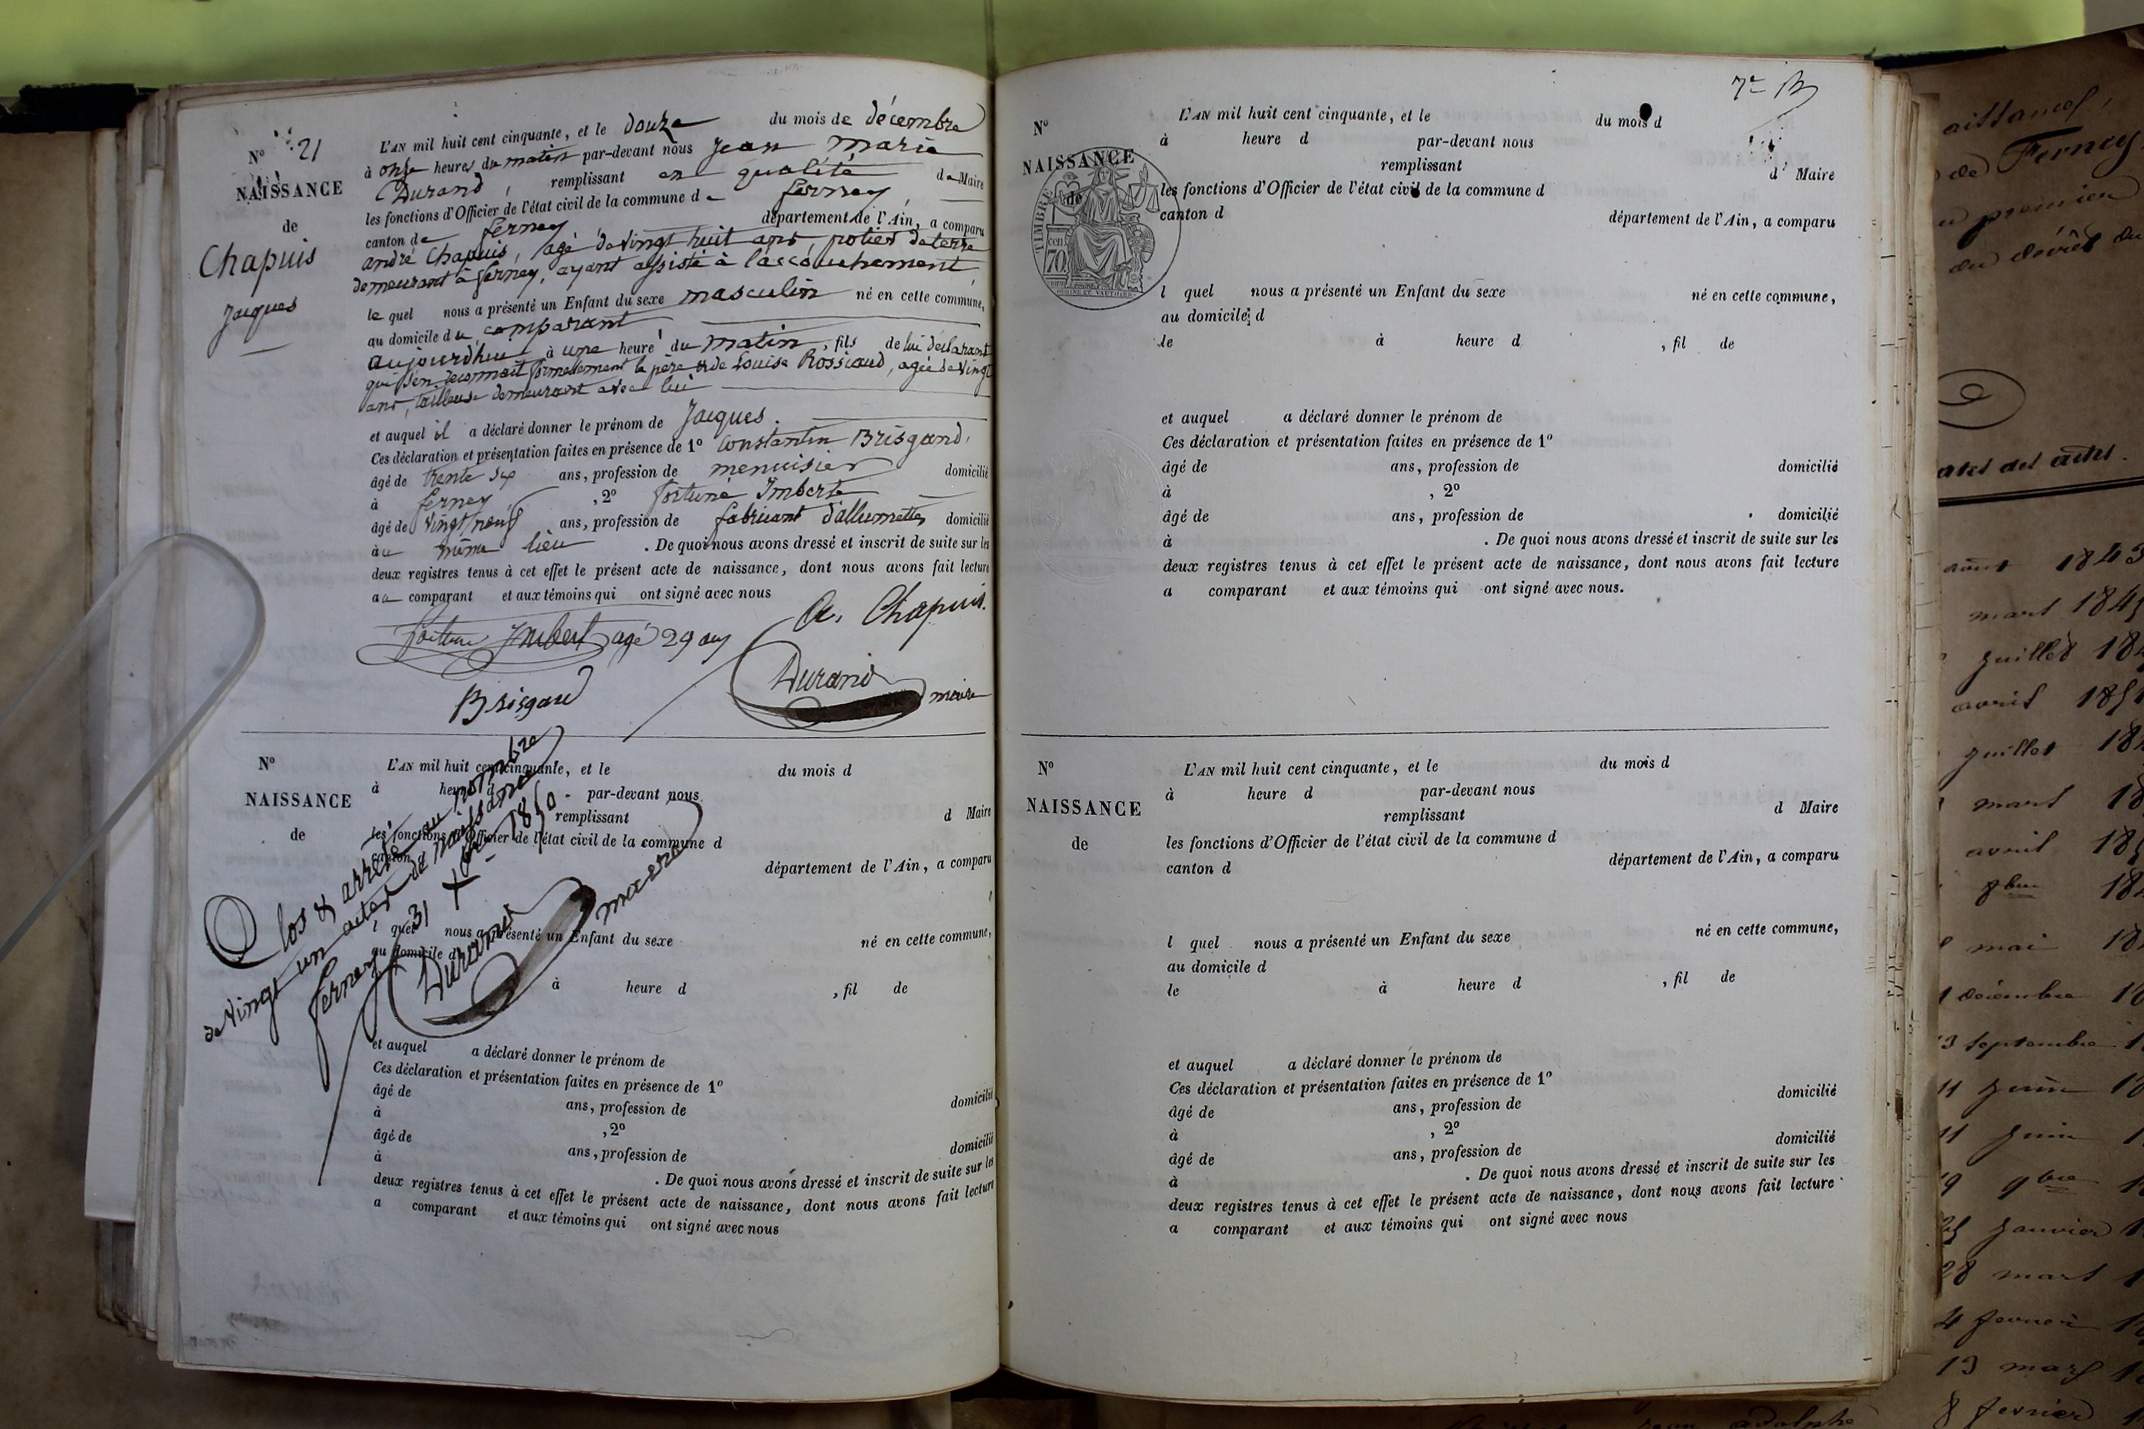 N° 21
NAISSANCE
de
Chapuis
Jacques
L'AN mil huit cent cinquante, et le douze du mois de décembre
à onze heures du matin par-devant nous Jean Marie
Durand, remplissant en qualité de Maire
les fonctions d'Officier de l'état civil de la commune de ferney
canton de ferney département de l'Ain, a comparu
andré Chapuis, agé de vingt huit ans, potier de terre
demeurant à ferney, ayant assisté à l'accouchement
le quel nous a présenté un Enfant du sexe masculin né en cette commune,
au domicile du comparant
aujourdhui à une heure du matin, fils de lui déclarant
qui s'en reconnait formellement le père & de Louise Rossiaud, agée de vingt
ans, tailleuse demeurant avec lui
et auquel il a déclaré donner le prénom de Jacques.
Ces déclaration et présentation faites en présence de 1° Constantin Brisgand,
âgé de trente six ans, profession de menuisier domicilié
à ferney, 2° fortuné Imberte
âgé de vingt neuf ans, profession de fabricant d'allumettes domicilié
au même lieu. De quoi nous avons dressé et inscrit de suite sur les
deux registres tenus à cet effet le présent acte de naissance, dont nous avons fait lecture
au comparant et aux témoins qui ont signé avec nous
A. Chapuis.
fortune Imbert agé 29 ans
Durand maire
Brisgaud
N°
NAISSANCE
de
L'AN mil huit cent cinquante, et le du mois d
à heure d par-devant nous
remplissant d Maire
les fonctions d'Officier de l'état civil de la commune d
canton d département de l'Ain, a comparu
l quel nous a présenté un Enfant du sexe né en cette commune,
au domicile d
à heure d , fil de
et auquel a déclaré donner le prénom de
Ces déclaration et présentation faites en présence de 1°
âgé de ans, profession de domicilié
à , 2°
âgé de ans, profession de domicilié
à . De quoi nous avons dressé et inscrit de suite sur les
deux registres tenus à cet effet le présent acte de naissance, dont nous avons fait lecture
a comparant et aux témoins qui ont signé avec nous
Clos & arrêté au nombre
de vingt un actes de naissance
ferney 31 Xbre 1850.
Durand maire
7e
N°
NAISSANCE
de
TIMBRE
70
L'AN mil huit cent cinquante, et le du mois d
à heure d par-devant nous
remplissant d Maire
les fonctions d'Officier de l'état civil de la commune d
canton d département de l'Ain, a comparu
l quel nous a présenté un Enfant du sexe né en cette commune,
au domicile d
le à heure d , fil de
et auquel a déclaré donner le prénom de
Ces déclaration et présentation faites en présence de 1°
âgé de ans, profession de domicilié
à , 2°
âgé de ans, profession de domicilié
à . De quoi nous avons dressé et inscrit de suite sur les
deux registres tenus à cet effet le présent acte de naissance, dont nous avons fait lecture
a comparant et aux témoins qui ont signé avec nous.
N°
NAISSANCE
de
L'AN mil huit cent cinquante, et le du mois d
à heure d par-devant nous
remplissant d Maire
les fonctions d'Officier de l'état civil de la commune d
canton d département de l'Ain, a comparu
l quel nous a présenté un Enfant du sexe né en cette commune,
au domicile d
le à heure d , fil de
et auquel a déclaré donner le prénom de
Ces déclaration et présentation faites en présence de 1°
âgé de ans, profession de domicilié
à , 2°
âgé de ans, profession de domicilié
à . De quoi nous avons dressé et inscrit de suite sur les
deux registres tenus à cet effet le présent acte de naissance, dont nous avons fait lecture
a comparant et aux témoins qui ont signé avec nous
aissances,
de Ferney
premier
des actes.
août 1843
mars 184
juillet 18
avril 18
juillet 18
mars 18
avril 18
8bre 18
mai 18
décembre 18
13 septembre 1
11 juin 18
11 juin 1
9 9bre 1
25 janvier 1
28 mars 1
4 fevrier 1
13 mars 1
8 fevrier 1
adolphe